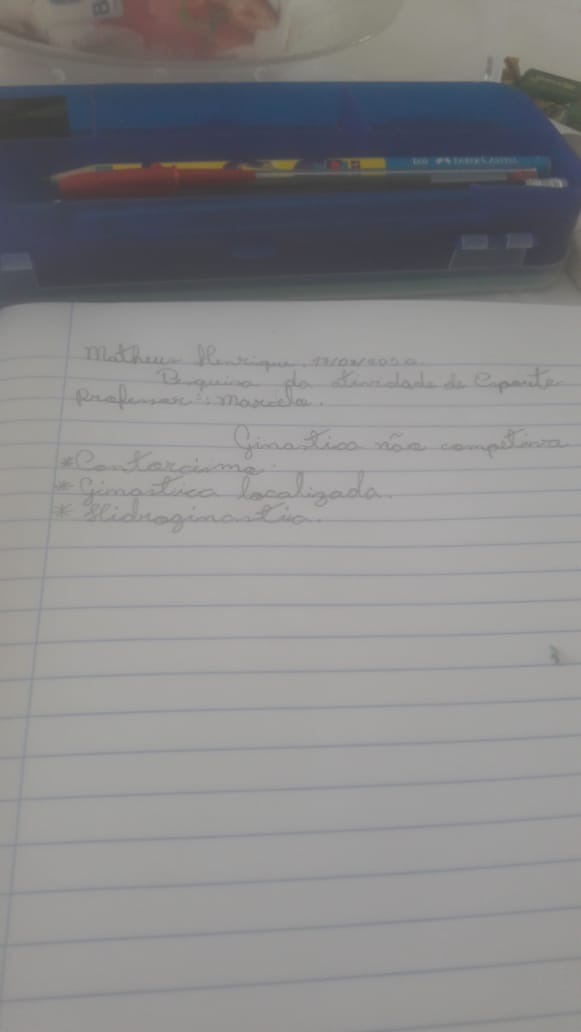 Matheus Henrique, 17/08/2020.
Pesquisa da atividade de Esporte
Professora: Marcela.
Ginastica não competiva
*Contorcismo.
*Ginastica localizada.
* Hidroginastia.
FABER-CASTELL